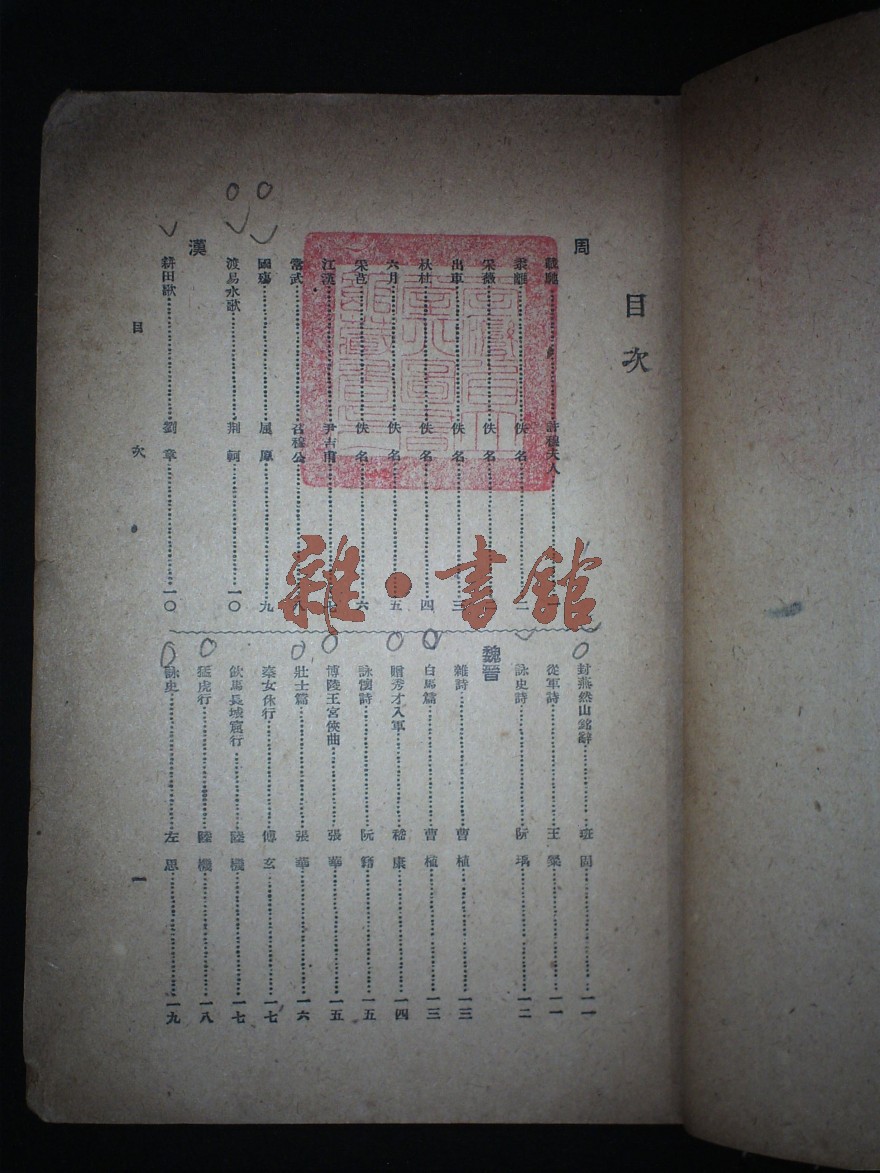 目次
周
載馳 許穆夫人 一
黍離 佚名 二
采薇 佚名
出車 佚名 三
杕杜 佚名 四
六月 佚名 五
采芑 佚名 六
江漢 尹吉甫
常武 召穆公 八
國殤 屈原 九
渡易水歌 荆軻 一〇
漢
耕田歌 劉章 一〇
封燕然山銘辭 班固 一一
從軍詩 王粲 一一
詠史詩 阮瑀 一二
魏晉
雜詩 曹植 一三
白馬篇 曹植 一三
贈秀才入軍 嵇康 一四
詠懷詩 阮籍 一五
博陵王宮俠曲 張華 一五
壯士篇 張華 一六
秦女休行 傅玄 一七
飲馬長城窟行 陸機 一七
猛虎行 陸機 一八
詠史 左思 一九
目次 一
雜·書館